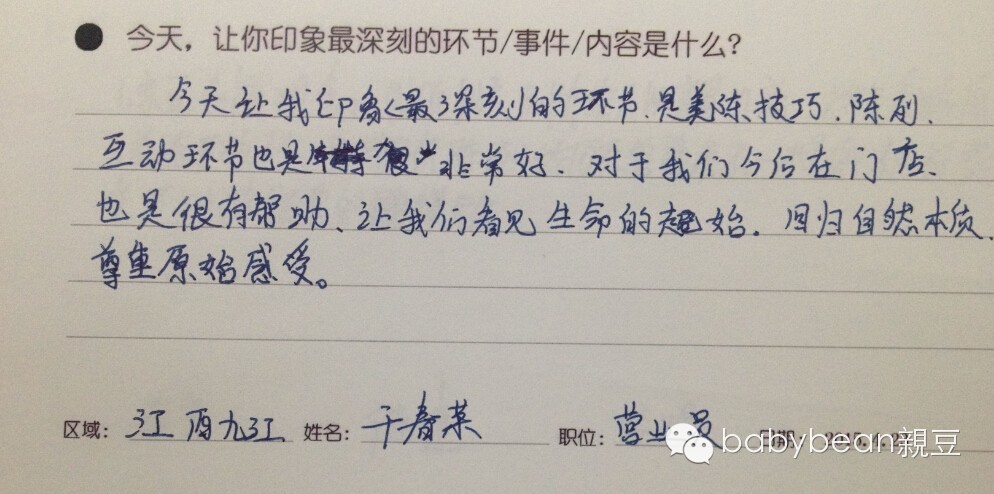 ● 今天，让你印象最深刻的环节/事件/内容是什么？
今天让我印象最深刻的环节.是美陈技巧.陈列.
互动环节也是非常好.对于我们今后在门店.
也是很有帮助、让我们看见生命的起始.回归自然本质.
尊重原始感受。
区域：江西九江 姓名：干春菜 职位：营业员 日期：
babybean親豆